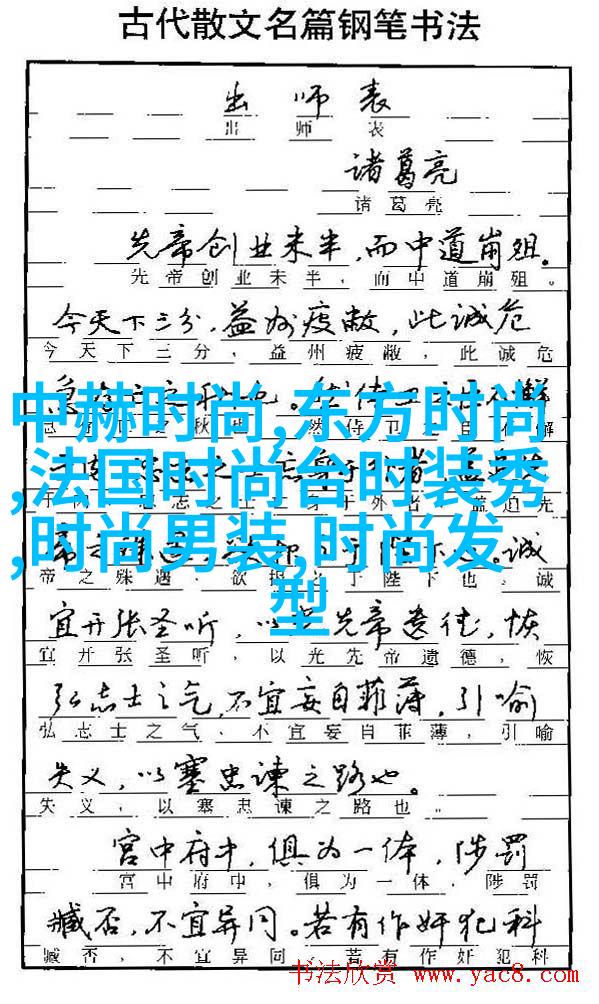 古代散文名篇钢笔书法
出师表
出师表
诸葛亮
诸葛亮
先帝创业未半，而中道崩殂。
先帝创业未半，而中道崩殂。
今天下三分，益州疲敝，此诚危
今天下三分，益州疲敝，此诚危
中赫时尚,东方时尚
,法国时尚台时装秀
,时尚男装,时尚发
型
诚
帝之殊遇，欲报之于陛下也，诚
宜开张圣听，以 先帝遗德，恢
宜开张圣听，以光先帝遗德，恢
弘志士之气，不宜妄自菲薄，引喻
弘志士之气，不宜妄自菲薄，引喻
失义，以塞忠谏之路也。
失义，以塞忠谏之路也。
宫中府中，俱为一体，陟罚
宫中府中，俱为一体，陟罚
臧否，不宜异同。若有作奸犯科
臧否，不宜异同。若有作奸犯科
书法欣赏 www.yac8.com